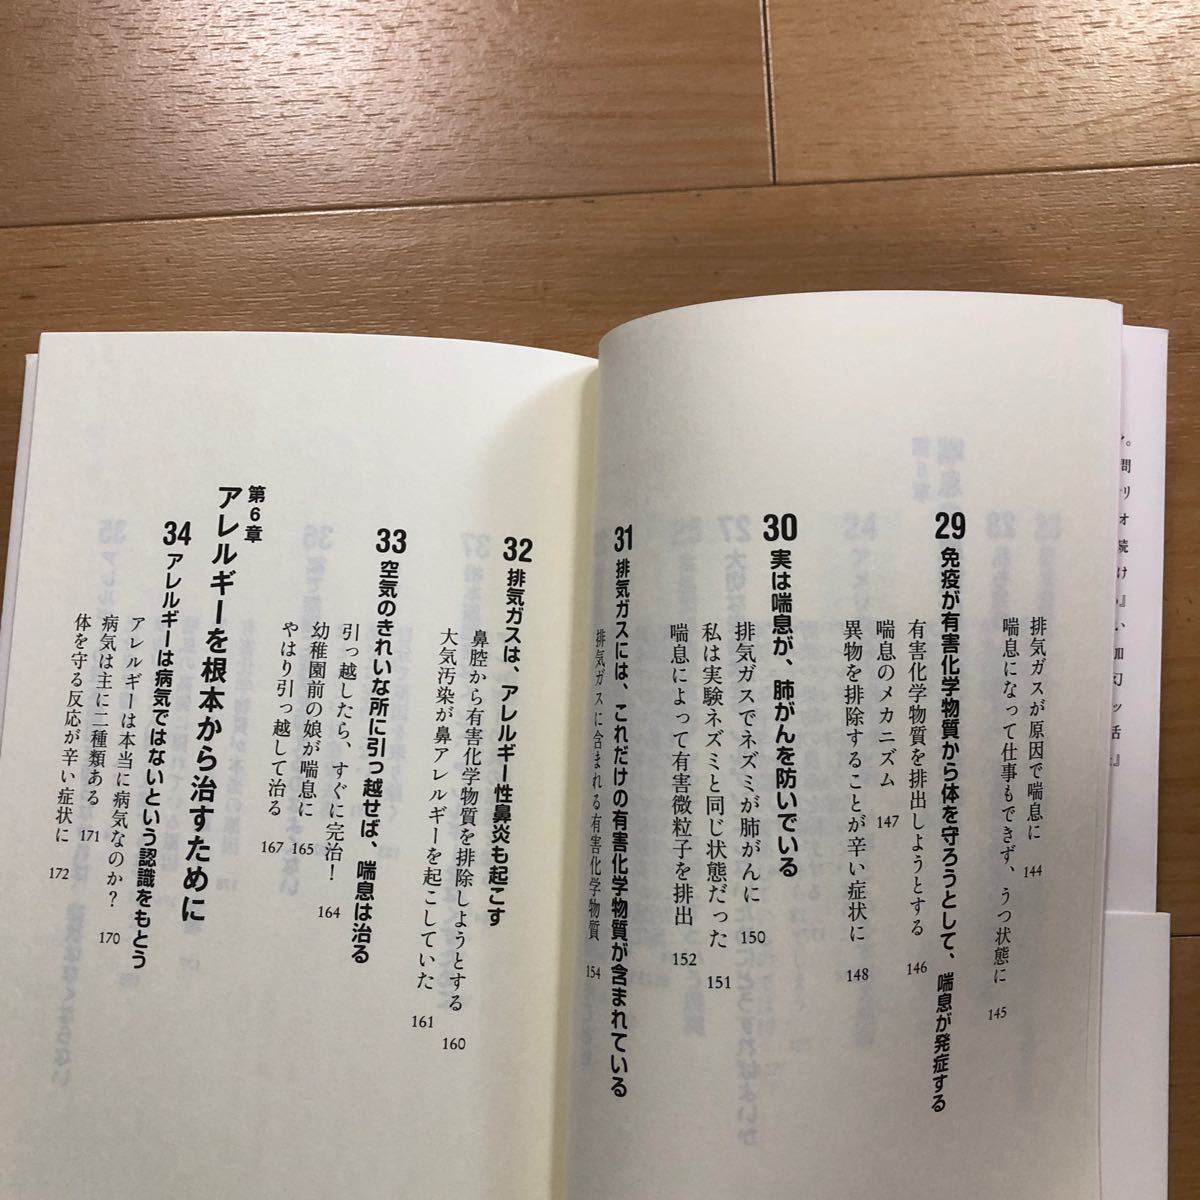 排気ガスが原因で喘息に 144
喘息になって仕事もできず、うつ状態に 145
29 免疫が有害化学物質から体を守ろうとして、喘息が発症する
有害化学物質を排出しようとする 146
喘息のメカニズム 147
異物を排除することが辛い症状に 148
30 実は喘息が、肺がんを防いでいる
排気ガスでネズミが肺がんに 150
私は実験ネズミと同じ状態だった 151
喘息によって有害微粒子を排出 152
31 排気ガスには、これだけの有害化学物質が含まれている
排気ガスに含まれる有害化学物質 154
32 排気ガスは、アレルギー性鼻炎も起こす
鼻腔から有害化学物質を排除しようとする 160
大気汚染が鼻アレルギーを起こしていた 161
33 空気のきれいな所に引っ越せば、喘息は治る
引っ越したら、すぐに完治! 164
幼稚園前の娘が喘息に 165
やはり引っ越して治る 167
第6章
アレルギーを根本から治すために
34 アレルギーは病気ではないという認識をもとう
アレルギーは本当に病気なのか? 170
病気は主に二種類ある 171
体を守る反応が辛い症状に 172